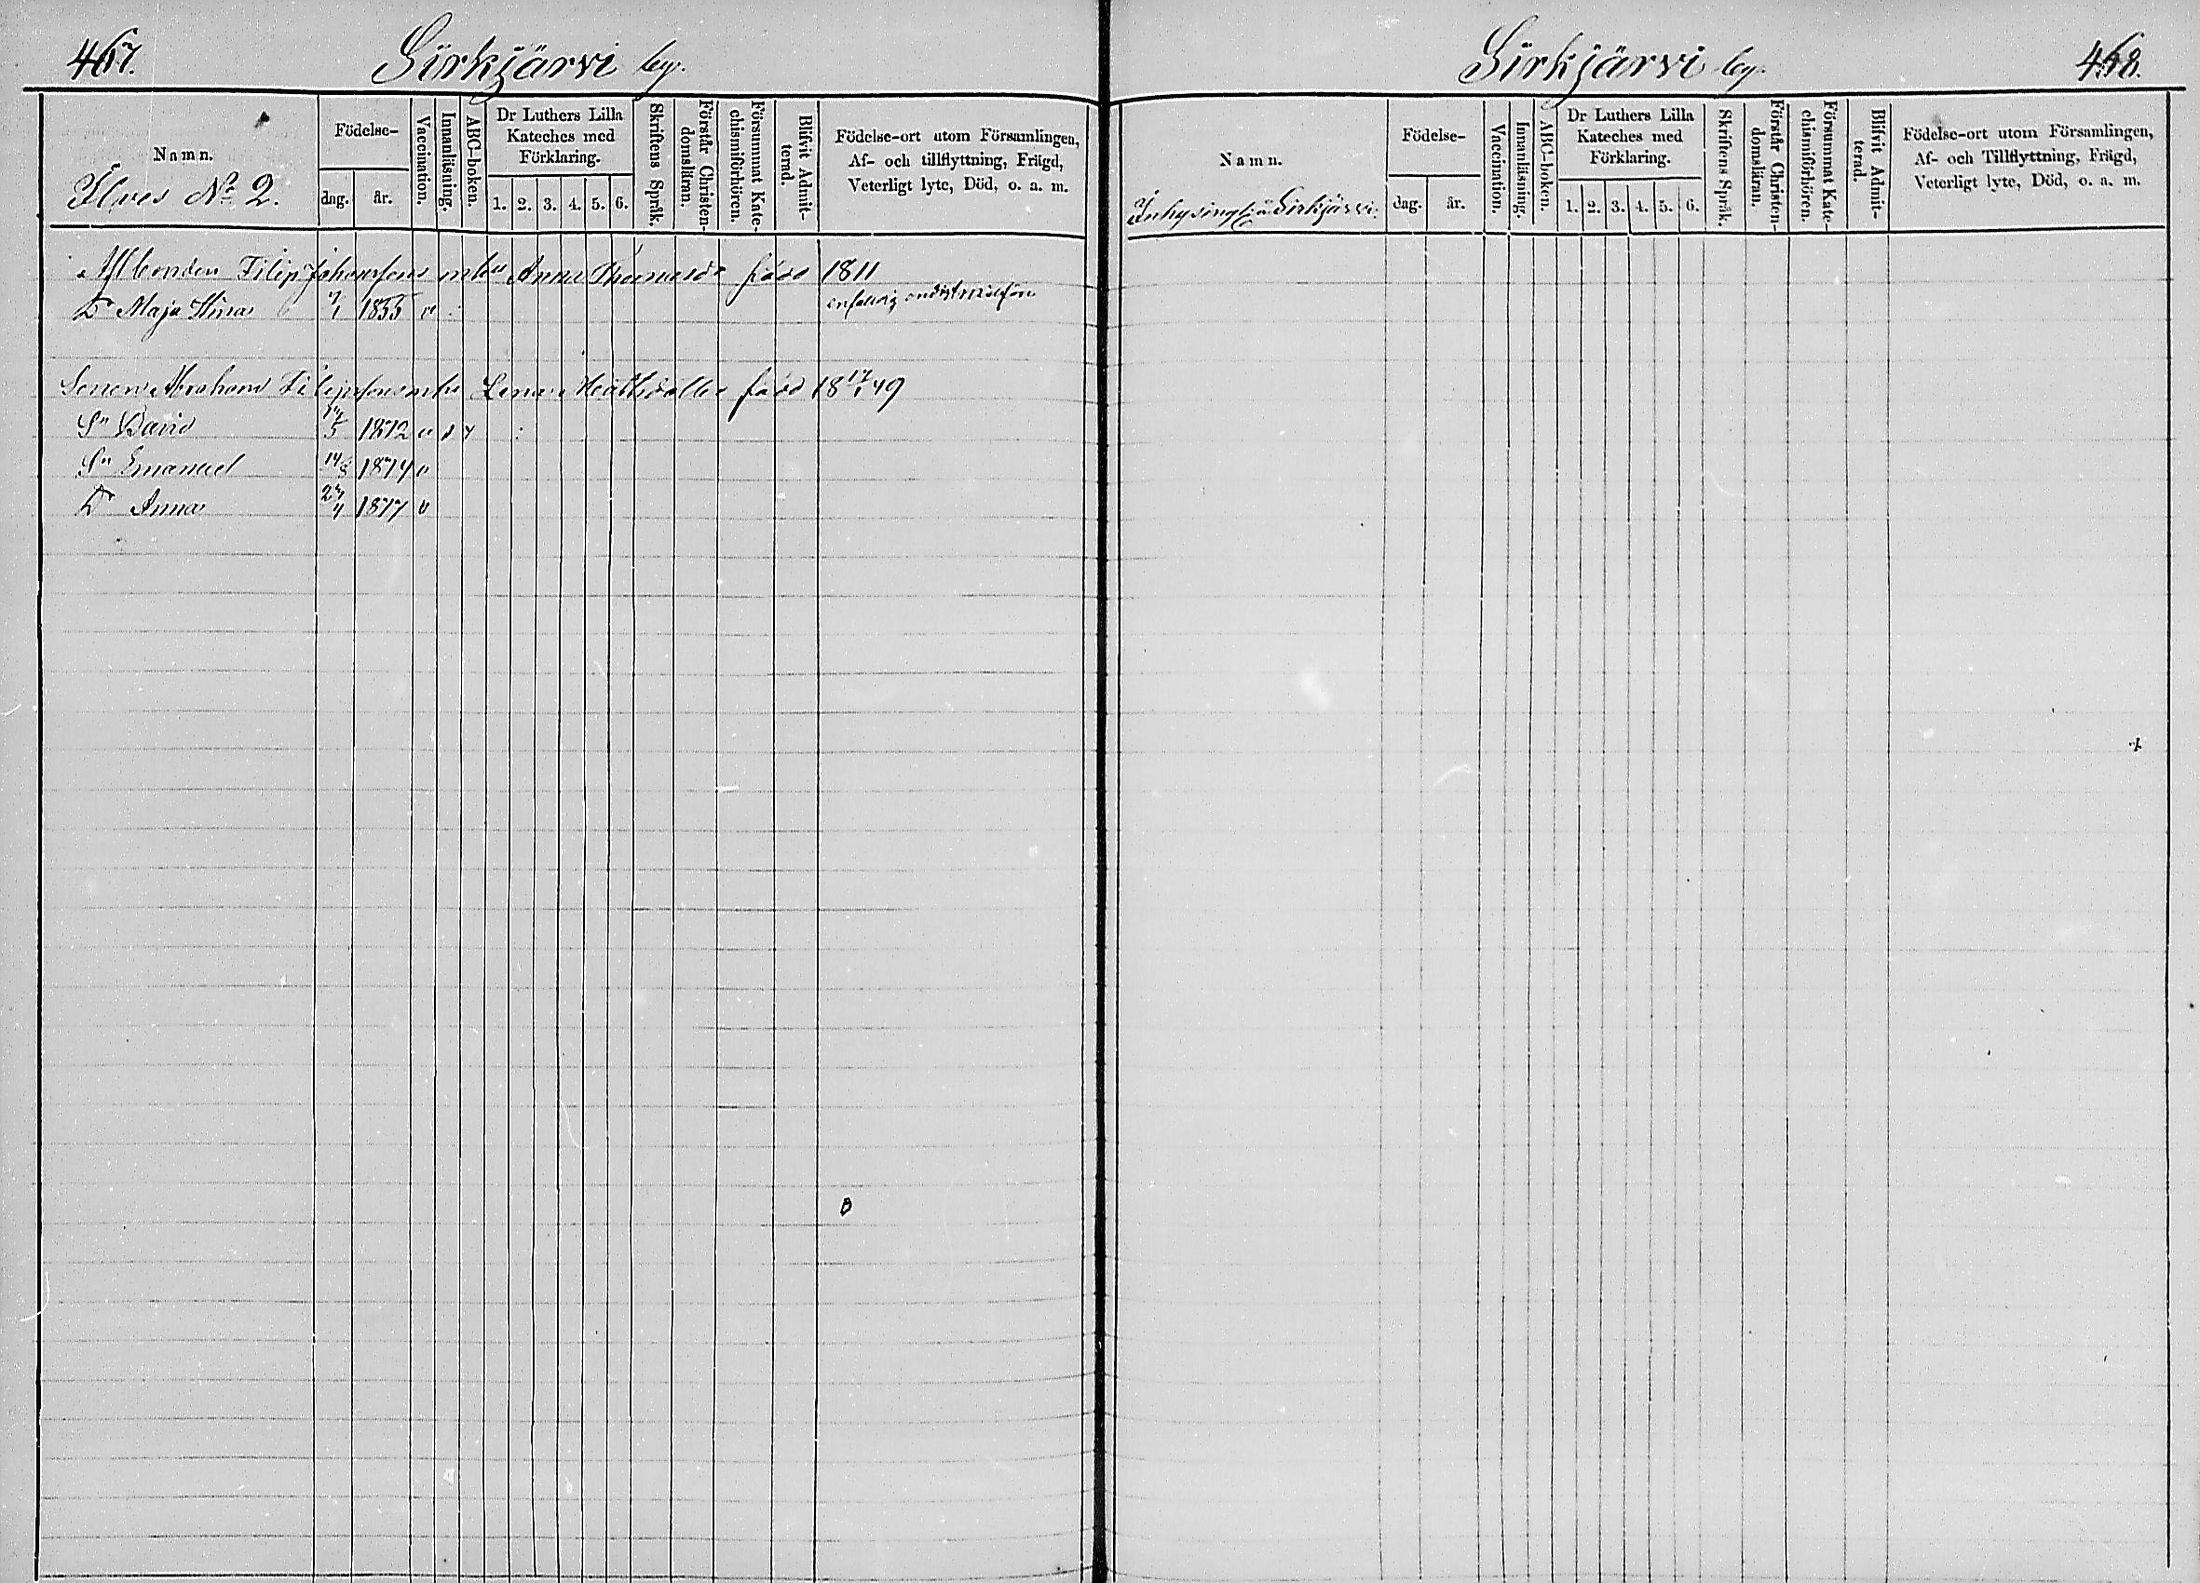 467. Sirkjärvi by.
Namn.
Ilves No 2.
Födelse-
dag. år.
Vaccination.
Innanläsning.
ABC-boken.
Dr Luthers Lilla
Kateches med
Förklaring.
1. 2. 3. 4. 5. 6.
Skriftens Språk.
Förstår Christen-
domsläran.
Försummat Kate-
chismiförhören.
Blifvit Admit-
terad.
Födelse-ort utom Församlingen,
Af- och tillflyttning, Frägd,
Veterligt lyte, Död, o. a. m.
Afl bonden Filip Johanssons enka Anna Thomasdr född 1811
Dr Maja Stina 1855 v
Sonen Abraham Filipsons enka Lena Mattsdotter född 18 17/1 49
Sn David 5 1872 v
Sn Emanuel 14/8 1874 v
Dr Anna 27/4 1877 v
Sirkjärvi by. 468.
Namn.
Inhysingar å Sirkjärvi.
Födelse-
dag. år.
Vaccination.
Innanläsning.
ABC-boken.
Dr Luthers Lilla
Kateches med
Förklaring.
1. 2. 3. 4. 5. 6.
Skriftens Språk.
Förstår Christen-
domsläran.
Försummat Kate-
chismiförhören.
Blifvit Admit-
terad.
Födelse-ort utom Församlingen,
Af- och Tillflyttning, Frägd,
Veterligt lyte, Död, o. a. m.